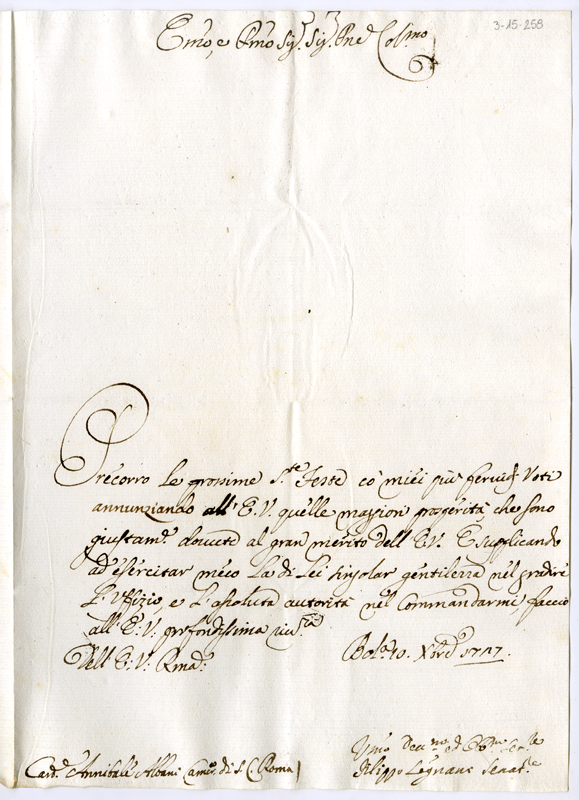 3-15-258
Emo, e Rmo Sig.r Sig.r Pne Col.mo
Precorro le prossime S.te Feste co' miei più feruidi Voti
annunziando all' E. V. quelle maggiori prosperità, che sono
giustam.e douute al gran merito dell' E. V. E supplicando
ad esercitar meco la di Lei singolar gentilezza nel gradire
l' Uffizio, e l' assoluta autorità nel Commandarmi faccio
all' E. V. profondissima riu.za
Dell' E. V. Rma. Bol.a 10. Xbre 1717.
Vmo Deu.mo ed Obb.mo Ser.re
Card.e Annibale Albani Camer. di S. C. Roma Filippo Legnani Senat.re